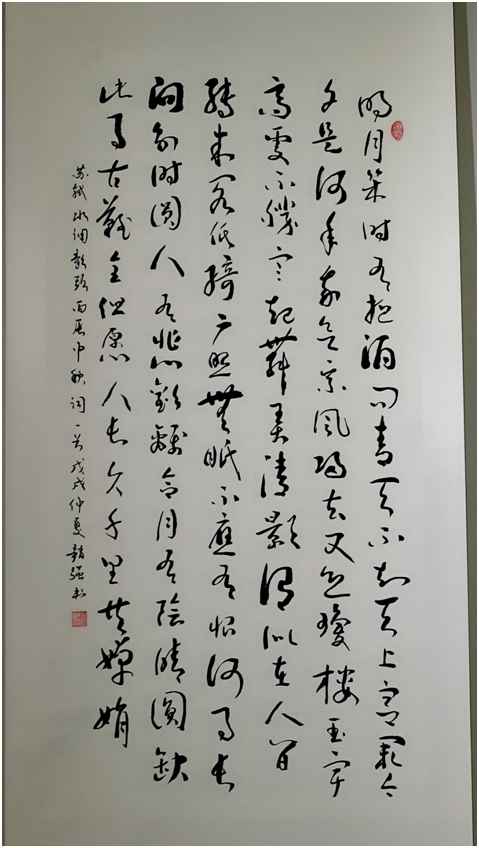 明月幾時有把酒問青天不知天上宮闕今
夕是何年我欲乘風歸去又恐瓊樓玉宇
高處不勝寒起舞弄清影何似在人間
轉朱閣低綺戶照無眠不應有恨何事長
向別時圓人有悲歡離合月有陰晴圓缺
此事古難全但願人長久千里共嬋娟
蘇軾水調歌頭丙辰中秋詞一首戊戌仲夏強書